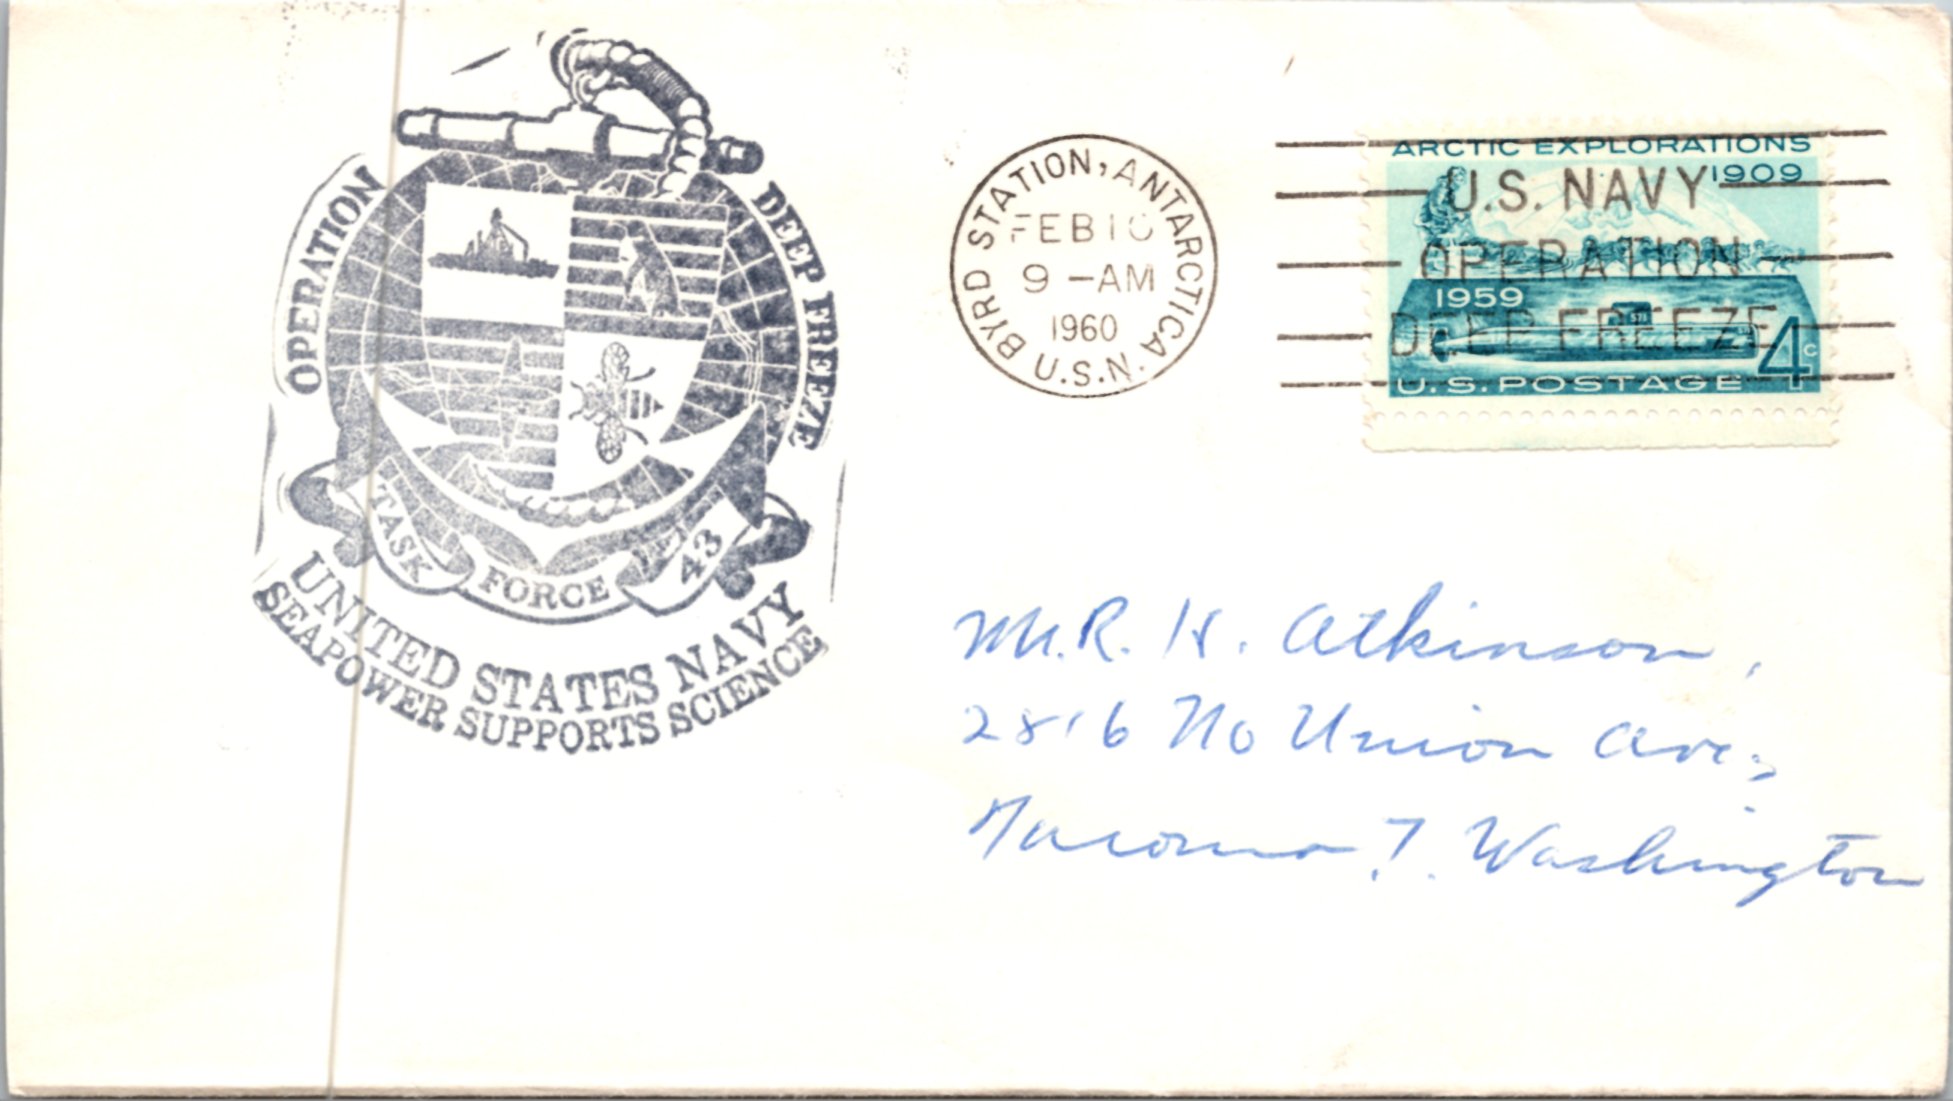 OPERATION DEEP FREEZE
TASK FORCE 43
UNITED STATES NAVY
SEAPOWER SUPPORTS SCIENCE
BYRD STATION, ANTARCTICA
FEB 10
9 -AM
1960
U.S.N.
ARCTIC EXPLORATIONS
1909
U.S. NAVY
OPERATION
1959
DEEP FREEZE
4c
U.S. POSTAGE
Mr. R. H. Atkinson,
2816 No Union Ave,
Tacoma, 7. Washington